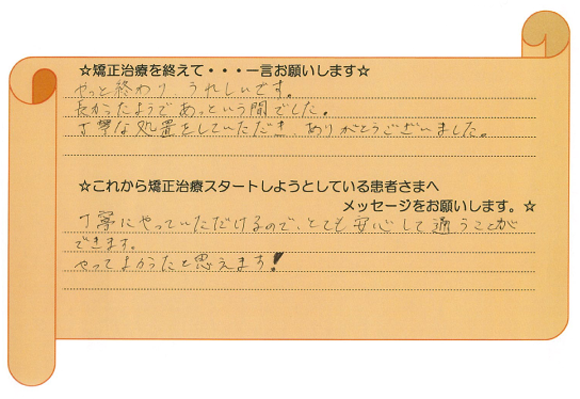 ☆矯正治療を終えて・・・一言お願いします☆
やっと終わり うれしいです。
長かったようであっという間でした。
丁寧な処置をしていただき、ありがとうございました。
☆これから矯正治療スタートしようとしている患者さまへ
メッセージをお願いします。☆
丁寧にやっていただけるので、とても安心して通うことが
できます。
やってよかったと思えます!